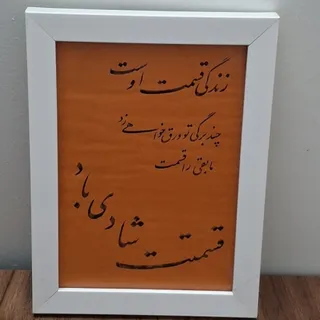 زندگی قسمت اوست
چند برگی تو ورق خواهی زد
مابقی را قسمت
قسمتت شادی باد